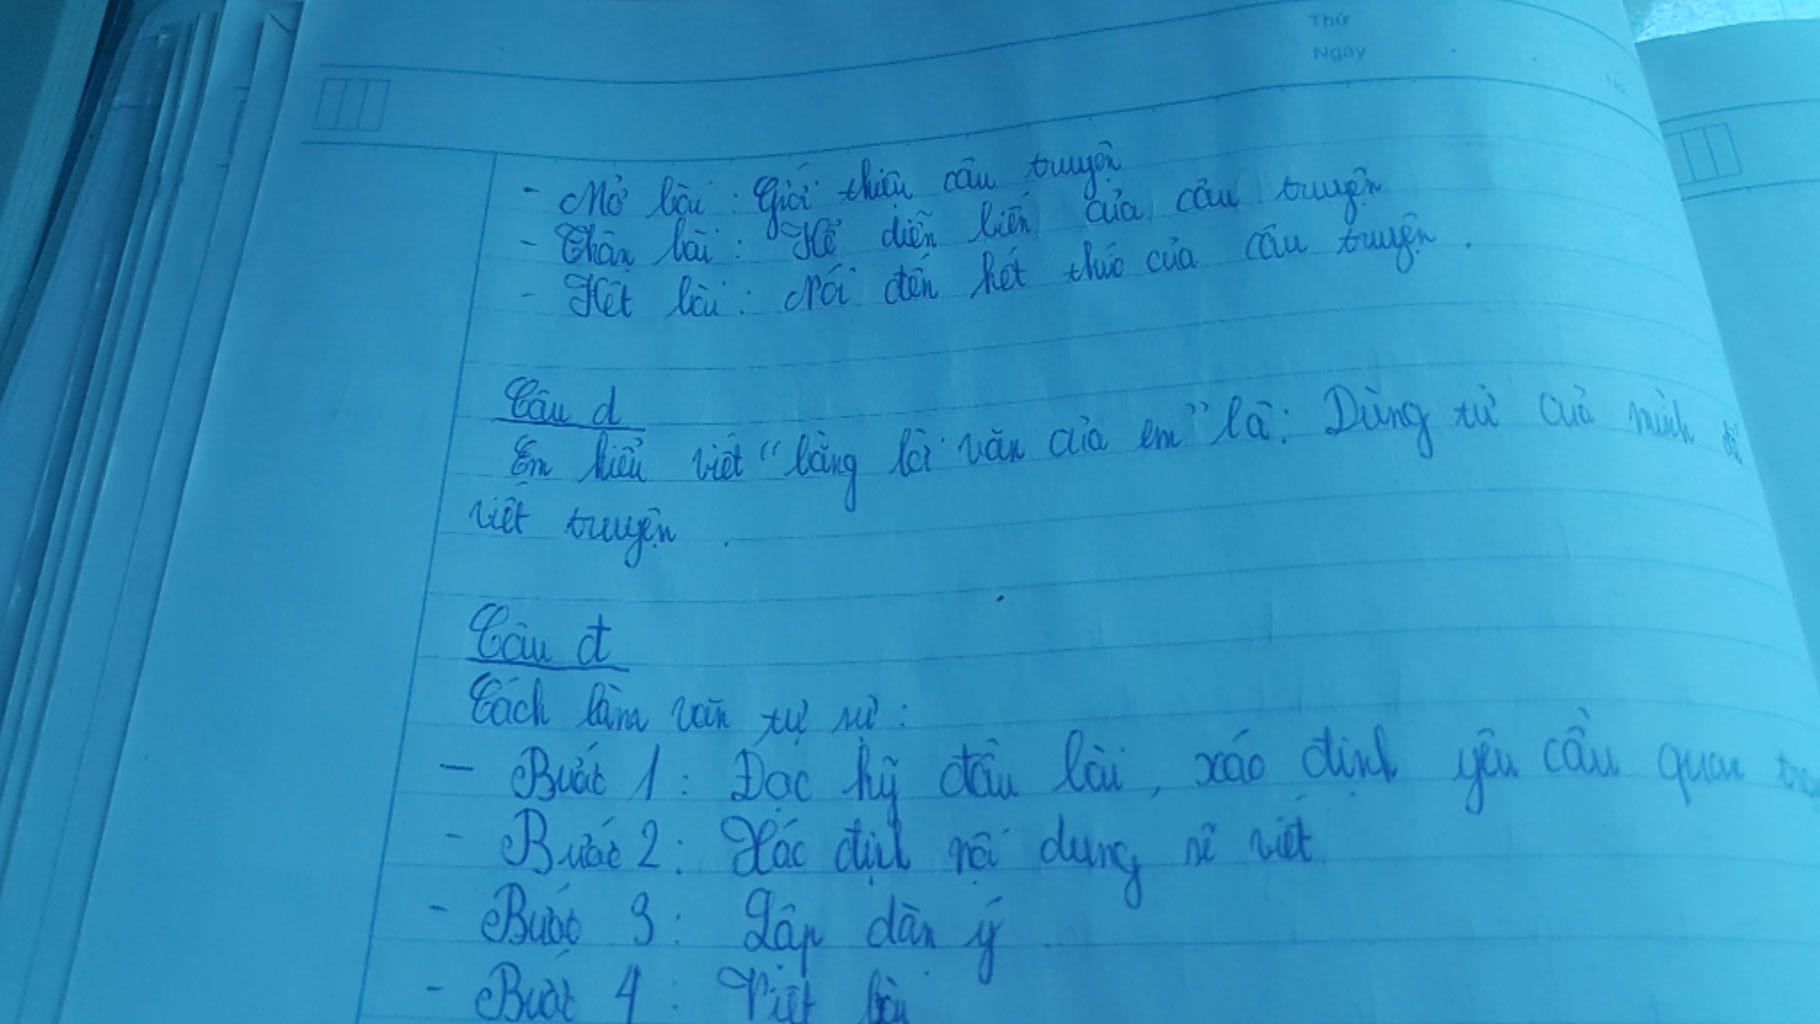 Thứ
Ngày
- Mở bài : Giới thiệu câu truyện
- Thân bài : Kể diễn biến của câu truyện
- Kết bài : Nói đến kết thúc của câu truyện .
Câu d
Em hiểu viết "bằng lời văn của em" là : Dùng từ của mình để
viết truyện .
Câu đ
Cách làm văn tự sự :
- Bước 1 : Đọc kỹ đầu bài, xác định yêu cầu quan
- Bước 2 : Xác định nội dung sẽ viết
- Bước 3 : Lập dàn ý .
- Bước 4 : Viết bài